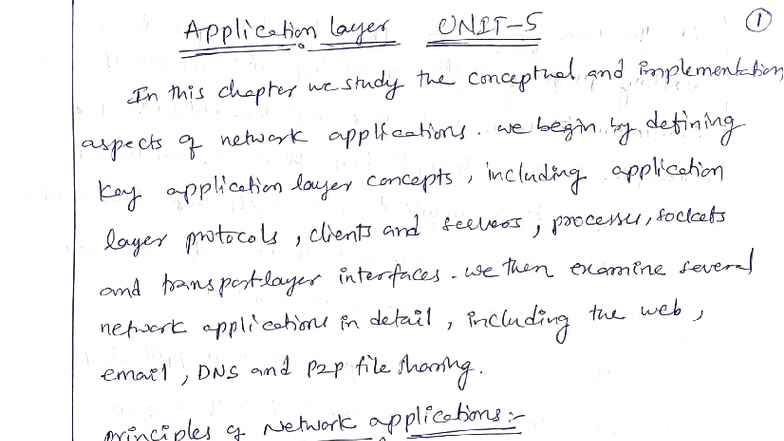 Application layer UNIT-5 1
In this chapter we study the conceptual and implementation
aspects of network applications. we begin by defining
key application layer concepts, including application
layer protocols, clients and servers, processes, sockets
and transport-layer interfaces. we then examine several
network applications in detail, including the web,
email, DNS and P2P file sharing.
principles of Network applications:-